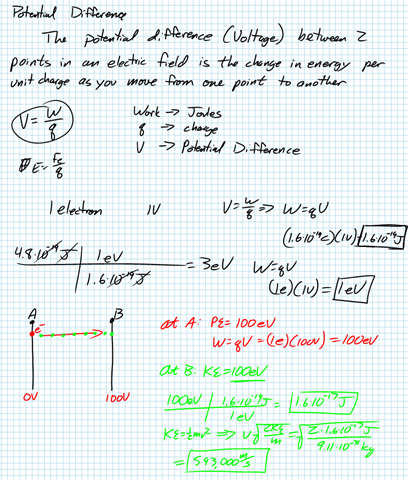 Potential Difference
The potential difference (Voltage) between 2
points in an electric field is the change in energy per
unit charge as you move from one point to another
V = W/q
Work → Joules
q → charge
V → Potential Difference
E = Fe/q
1 electron 1V
V = W/q ⇒ W = qV
(1.6·10⁻¹⁹C)(1V) = 1.6·10⁻¹⁹J
4.8·10⁻¹⁹ J | 1eV
1.6·10⁻¹⁹ J
= 3eV
W = qV
(1e)(1V) = 1eV
A B
e⁻
0V 100V
at A: PE = 100eV
W = qV = (1e)(100V) = 100eV
at B: KE = 100eV
100eV | 1.6·10⁻¹⁹J
1eV
= 1.6·10⁻¹⁷J
KE = ½mv² ⇒ v = √(2KE/m) = √(2·1.6·10⁻¹⁷J / 9.11·10⁻³¹kg)
= 593,000 m/s